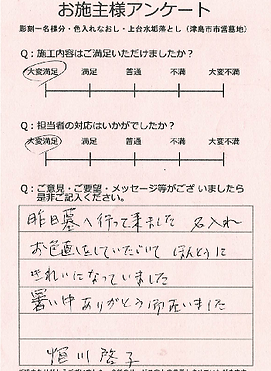 お施主様アンケート
彫刻一名様分・色入れなおし・上台水垢落とし（津島市市営墓地）
Q：施工内容はご満足いただけましたか？
大変満足 満足 普通 不満 大変不満
Q：担当者の対応はいかがでしたか？
大変満足 満足 普通 不満 大変不満
Q：ご意見・ご要望・メッセージ等がございましたら
是非ご記入ください。
昨日墓へ行って来ました 名入れ
お色直しをしていただいて ほんとうに
きれいになっていました
暑い中ありがとう御座いました
恒川啓子